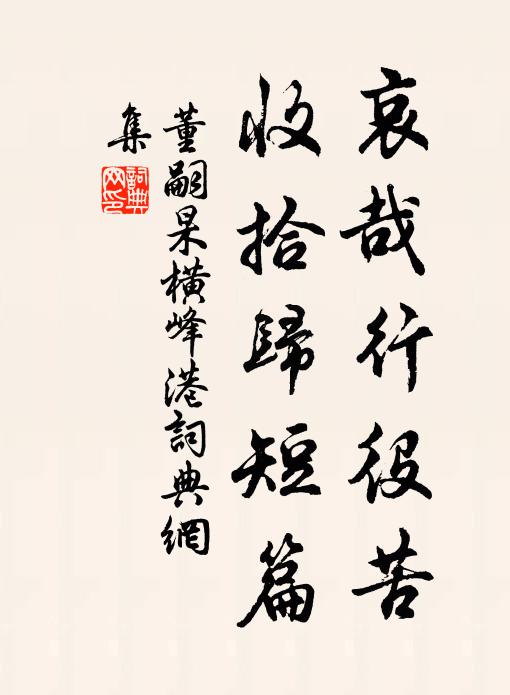 哀哉行役苦
收拾歸短篇
董嗣杲橫峰港詞典網
集
詞典
网印